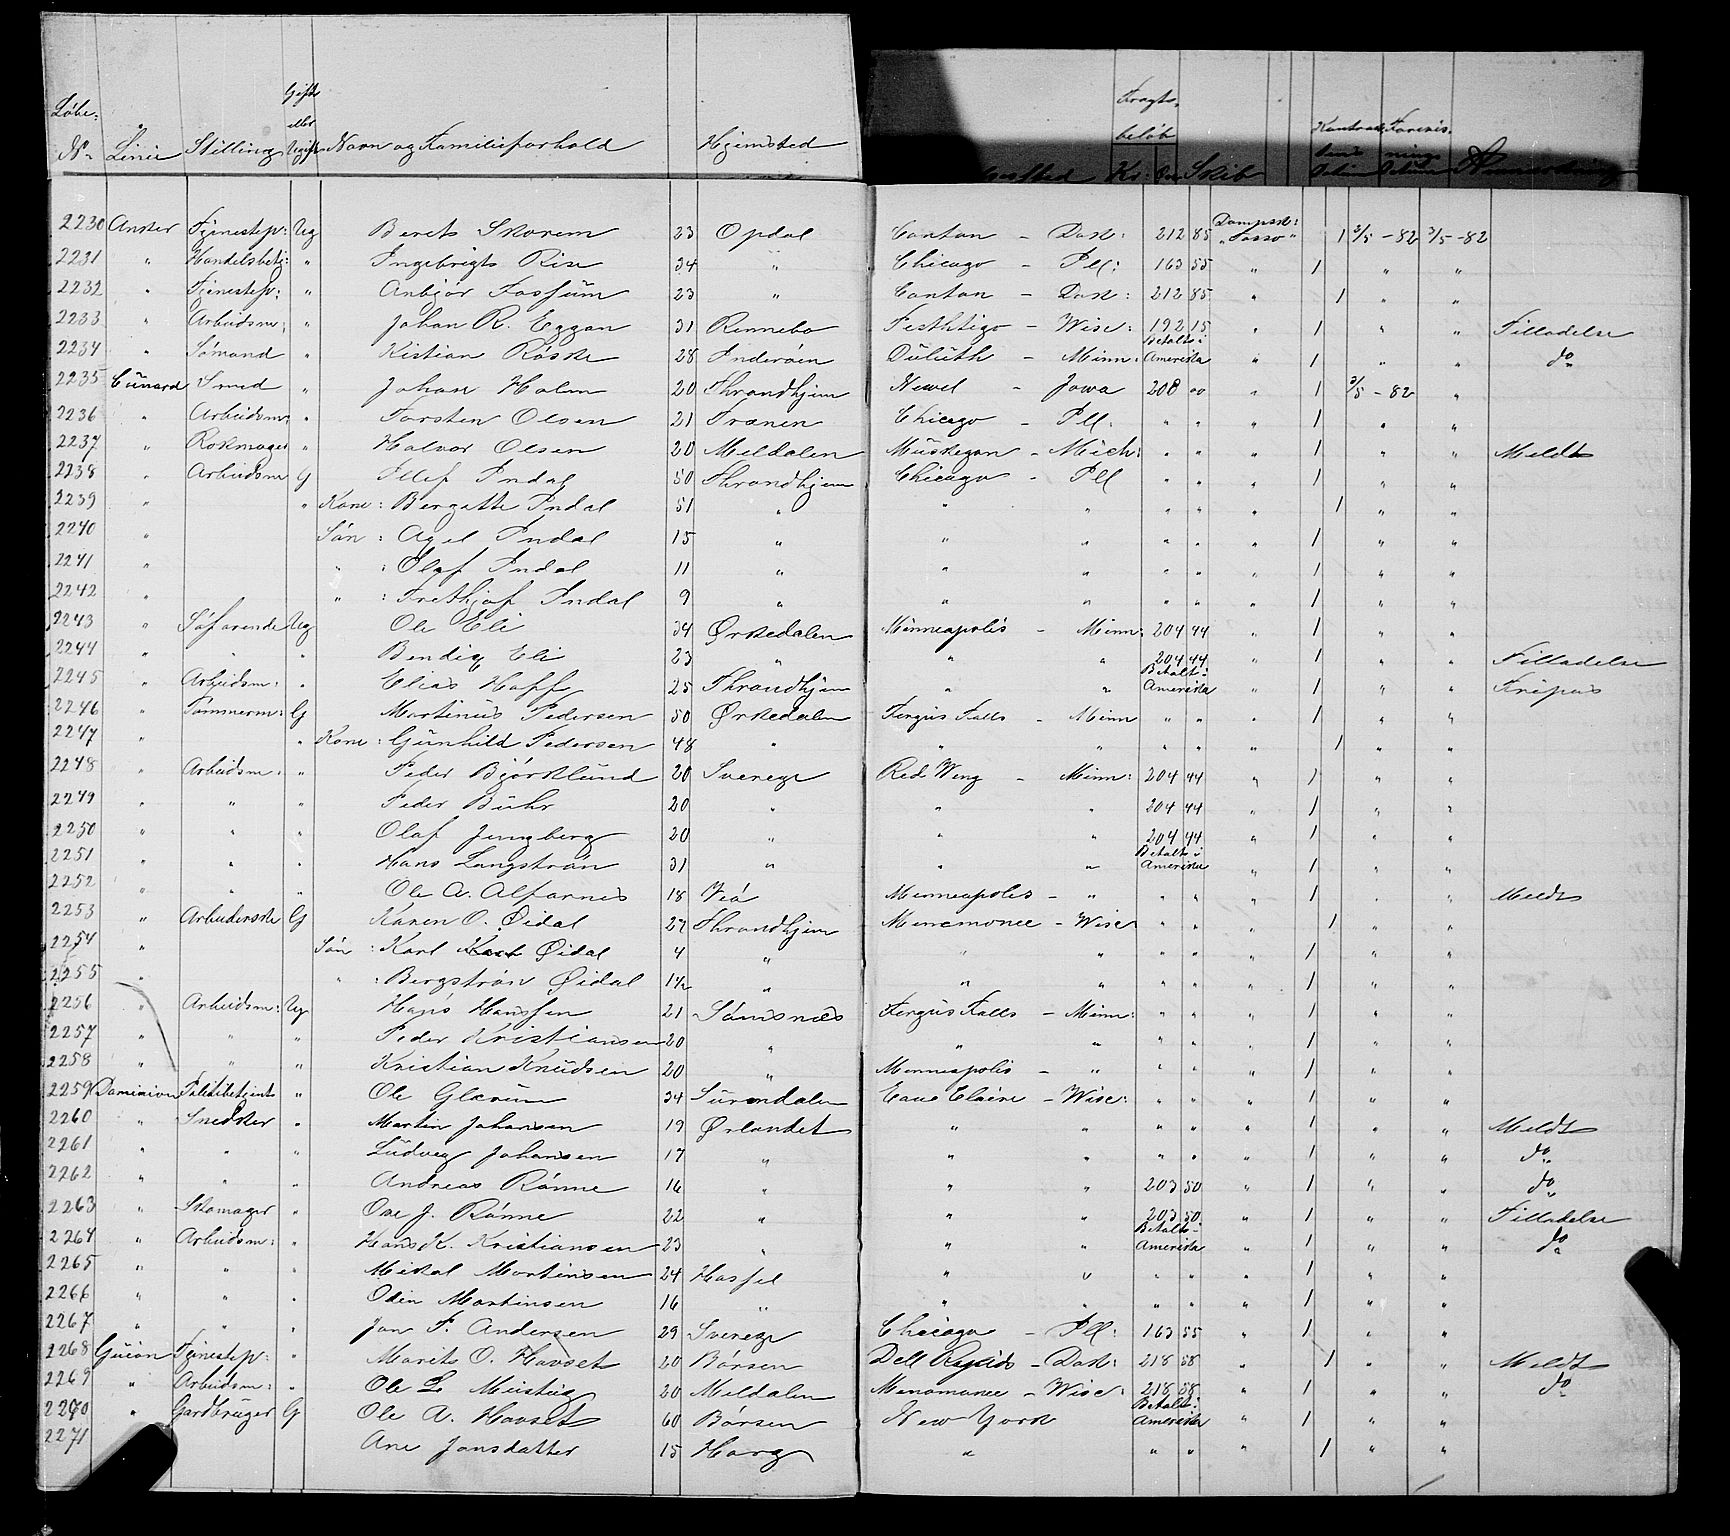 Løbe- Gift eller Fragt- Kontrak- Forevis-
N° Linie Stilling Ugift Navn og Familieforhold Hjemsted beløb Kr: Skib
2230 Anker Tjenestep: Ug Berets Skorem 23 Opdal Canton - Dak: 212 85 Dampsk: "Tasso" 1 3/5 - 82 3/5 - 82
2231 " Handelsbetj: " Ingebrigts Rise 34 " Chicago - Ill: 163 55 " 1 " "
2232 " Tjenestep: " Anbjør Fossum 23 " Canton - Dak: 212 85 " 1 " "
2233 " Arbeidsm: " Johan R. Eggan 31 Rennebo Pesthtigo - Wisc: 192 15 " 1 " " Tilladelse
2234 " Sømand " Kistian Røske 28 Inderøen Duluth - Minn: Betalt i Amerika " 1 " " do
2235 Cunard Smed " Johan Holm 20 Throndhjem Newel - Jowa 208 00 " 1 3/5 - 82 "
2236 " Arbeidsm: " Torsten Olsen 21 Tranen Chicago - Ill: " " " 1 " "
2237 " Rokmager " Halvor Olsen 20 Meldalen Muskegon - Mich: " " " 1 " " Meldt
2238 " Arbeidsm G Illef Indal 50 Throndhjem Chicago - Ill " " " 1 " "
2239 " " Kone: Bergitte Indal 51 " " " " " 1 " "
2240 " Søn: Agel Indal 15 " " " " " " 1 " "
2241 " " : Olaf Indal 11 " " " " " " 1 " "
2242 " " : Frethjof Indal 9 " " " " " " 1 " "
2243 " Søfarende Ug Ole Eli 34 Ørkedalen Minneapolis - Minn: 204 44 " 1 " "
2244 " " " Bendig Eli 23 " " " 204 44 " 1 " " Tilladelse
2245 " Arbeidsm: " Elias Hoff 25 Throndhjem " " Betalt i Amerika " 1 " " Fripas
2246 " Tømmerm: G Martinus Pedersen 50 Ørkedalen Fergus Falls - Minn " " " 1 " "
2247 " " Kone: Gunhild Pedersen 48 " " " " " " 1 " "
2248 " Arbeidsm: " Peder Bjørklund 20 Sverige Red Wing - Minn: 204 44 " 1 " "
2249 " " " Peder Buhr 20 " " " 204 44 " 1 " "
2250 " " " Olaf Jungberg 20 " " " 204 44 " 1 " "
2251 " " " Hans Langstrøn 31 " " " Betalt i Amerika " 1 " "
2252 " " " Ole A. Alfarnes 18 Veø Minneapolis - " " " " 1 " " Meldt
2253 " Arbeiderske G Karen O. Øidal 27 Throndhjem Menemonee - Wisc " " " 1 " "
2254 " Søn: Karl Øidal 4 " " " " " " 1 " "
2255 " " : Bergstrøn Øidal 1½ " " " " " " 1 " "
2256 " Arbeidsm: Ug Hans Hanssen 21 Sømsnæs Fergus Falls - Minn: " " " 1 " "
2257 " " " Peder Kristiansen 20 " " " " " " 1 " "
2258 " " " Kristian Knudsen 20 " Minneapolis - " " " " 1 " "
2259 Dominion Politibetjent " Ole Glærum 34 Surendalen Eaue Claire - Wisc: " " " 1 " "
2260 " Snedker " Martin Johansen 19 Ørlandet " " " " " 1 " " Meldt
2261 " " " Ludveg Johansen 17 " " " " " " 1 " " do
2262 " " " Andreas Rønne 16 " " " 203 50 " 1 " " do
2263 " Skomager " Ove J. Rønne 22 " " " 203 50 " 1 " " Tilladelse
2264 " Arbeidsm: " Hans K. Kristiansen 23 " " " Betalt i Amerika " 1 " " do
2265 " " " Mikal Mortinsen 24 Hasfel " " " " " 1 " "
2266 " " " Odin Mortinsen 16 " " " " " " 1 " "
2267 " " " Jon P. Andersen 29 Sverige Chicago - Ill: 163 55 " 1 " "
2268 Guion Tjenestep: " Marits O. Havset 20 Børsen Dell Rapids - Dak: 218 58 " 1 " " Meldt
2269 " Arbeidsm: " Ole L. 20 Meldalen Menomonee - Wisc: 218 58 " 1 " " do
2270 " Gardbruger G Ole A. Havset 60 Børsen New York Betalt i Amerika " 1 " "
2271 Ane Jonsdatter 15 Horg " " " " 1 " "